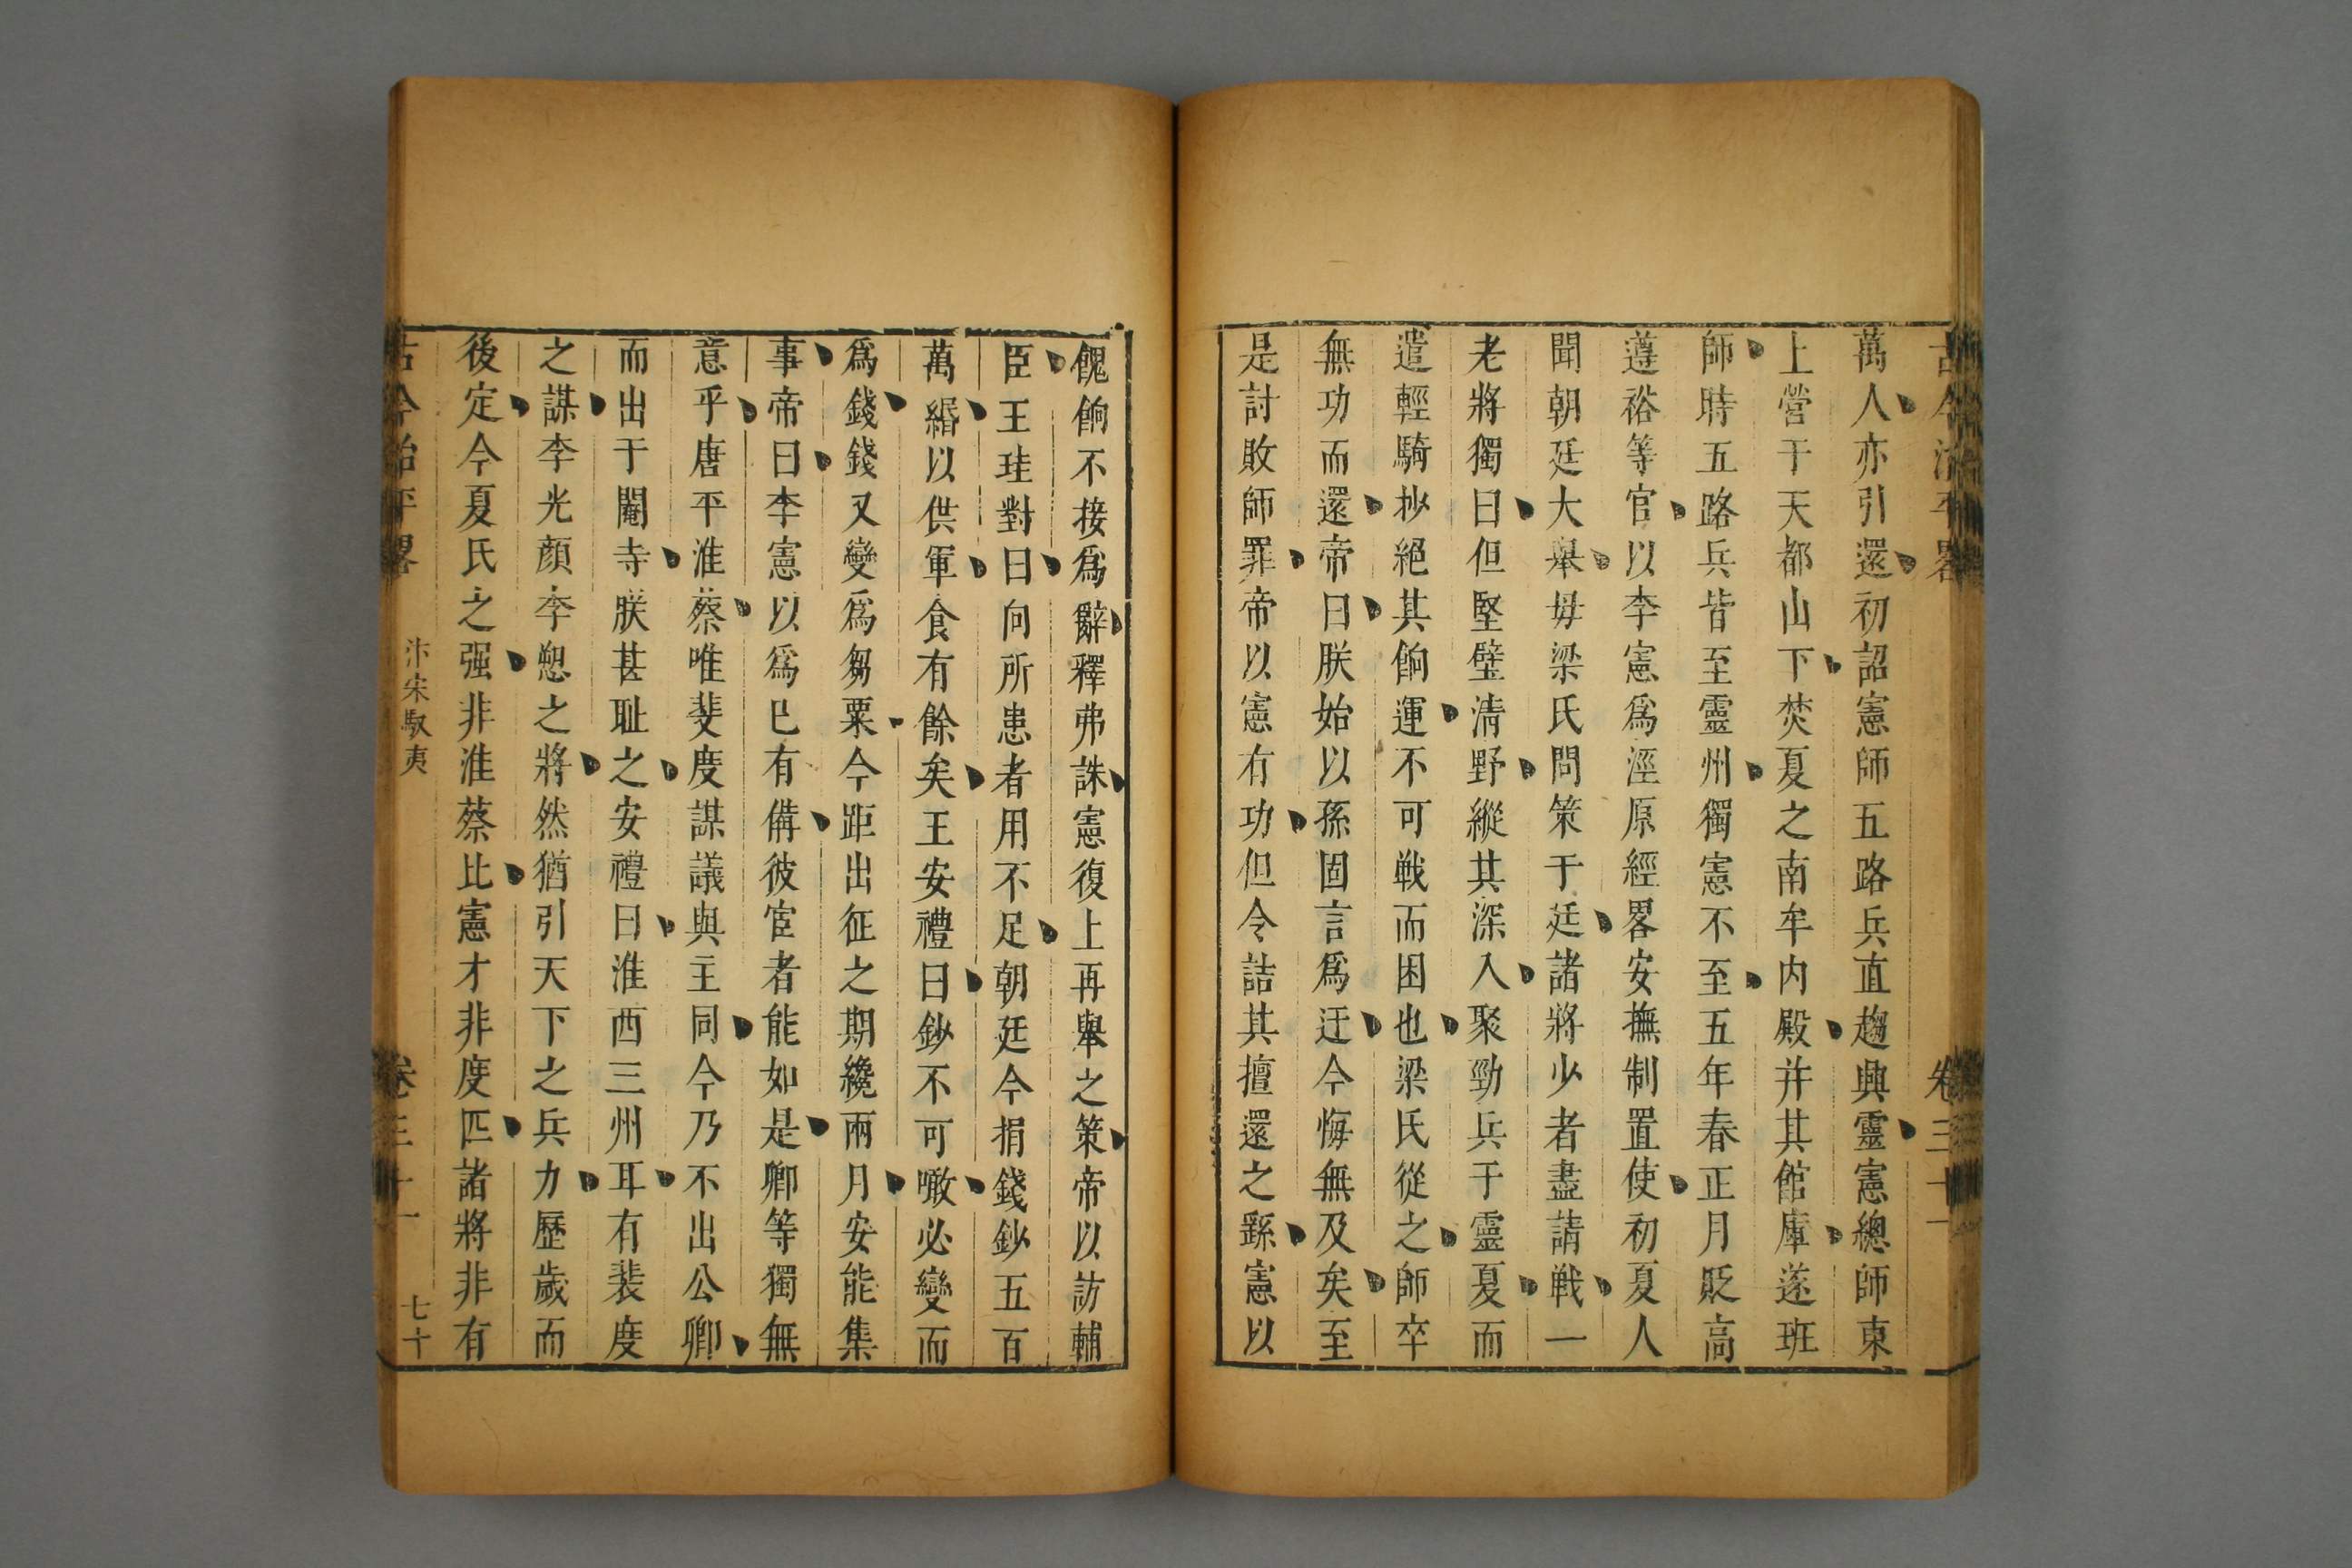 古今治平畧 卷三十一
萬人亦引還初詔憲師五路兵直趨興靈憲總師東
上營于天都山下焚夏之南牟内殿并其館庫遂班
師時五路兵皆至靈州獨憲不至五年春正月貶高
遵裕等官以李憲爲涇原經畧安撫制置使初夏人
聞朝廷大舉母梁氏問策于廷諸將少者盡請戦一
老將獨曰但堅壁清野縱其深入聚勁兵于靈夏而
遣輕騎抄絕其餉運不可戦而困也梁氏從之師卒
無功而還帝曰朕始以孫固言爲迂今悔無及矣至
是討敗師罪帝以憲有功但令詰其擅還之繇憲以
餽餉不接爲辭釋弗誅憲復上再舉之策帝以訪輔
臣王珪對曰向所患者用不足朝廷今捐錢鈔五百
萬緡以供軍食有餘矣王安禮曰鈔不可噉必變而
爲錢錢又變爲芻粟今距出征之期纔兩月安能集
事帝曰李憲以爲已有備彼宦者能如是卿等獨無
意乎唐平淮蔡唯斐度謀議與主同今乃不出公卿
而出于閹寺朕甚耻之安禮曰淮西三州耳有裴度
之謀李光顔李愬之將然猶引天下之兵力歷歲而
後定今夏氏之强非淮蔡比憲才非度匹諸將非有
古今治平畧 汴宋馭夷 卷三十一 七十